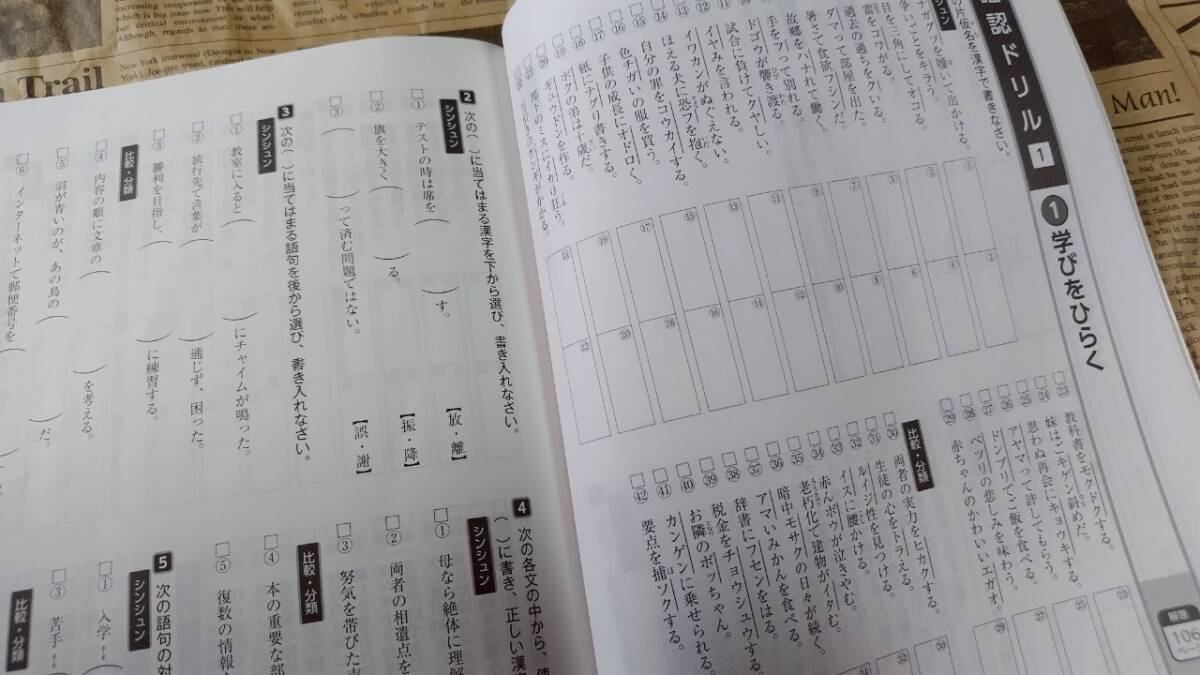 確認ドリル 1
❶ 学びをひらく
の片仮名を漢字で書きなさい。
シンシュン
ナガグツを履いて出かける。
争いごとをキラう。
目を三角にしてオコる。
雷をコワがる。
過去の過ちをクいる。
ダマって部屋を出た。
暑さで食欲フシンだ。
故郷をハナれて働く。
手をフって別れる。
ドゴウが響き渡る。
試合に負けてクヤしい。
イヤみを言われる。
イワカンがぬぐえない。
ほえる犬に恐フを抱く。
自分の罪をコウカイする。
色チガいの服を買う。
子供の成長にオドロく。
紙にナグり書きする。
ボクの弟は十歳だ。
ギュウドンを作る。
部下のミスにイカり狂う。
㉓ 教科書をモクドクする。
㉔ 妹はごキゲン斜めだ。
㉕ 思わぬ再会にキョウキする。
㉖ アヤマって許してもらう。
㉗ ドンブリでご飯を食べる。
㉘ ベツリの悲しみを味わう。
㉙ 赤ちゃんのかわいいエガオ。
比較・分類
㉚ 両者の実力をヒカクする。
㉛ 生徒の心をトラえる。
㉜ ルイジ性を見つける。
㉝ イスに腰かける。
㉞ 赤んボウが泣きやむ。
㉟ 老朽化で建物がイタむ。
㊱ 暗中モサクの日々が続く。
㊲ アマいみかんを食べる。
㊳ 辞書にフセンをはる。
㊴ 税金をチョウシュウする。
㊵ お隣のボッちゃん。
㊶ カンゲンに乗せられる。
㊷ 要点を捕ソクする。
解答
106
ページ
2 次の（ ）に当てはまる漢字を下から選び、書き入れなさい。
シンシュン
① テストの時は席を（ ）す。【放・離】
② 旗を大きく（ ）る。【振・降】
③ （ ）って済む問題ではない。【誤・謝】
3 次の（ ）に当てはまる語句を後から選び、書き入れなさい。
シンシュン
① 教室に入ると（ ）にチャイムが鳴った。
② 旅行先で言葉が（ ）通じず、困った。
③ 勝利を目指し、（ ）に練習する。
比較・分類
④ 内容の順に文章の（ ）を考える。
⑤ 羽が青いのが、あの鳥の（ ）だ。
⑥ インターネットで郵便番号を（
4 次の各文の中から、使
（ ）に書き、正しい漢字
シンシュン
① 母なら絶体に理解
② 両者の相遺点を
③ 努気を帯びた
比較・分類
④ 本の重要な部
⑤ 復数の情報
5 次の語句の対
シンシュン
① 入学↔（
③ 苦手↔（
比較・分類
Trail
Man!